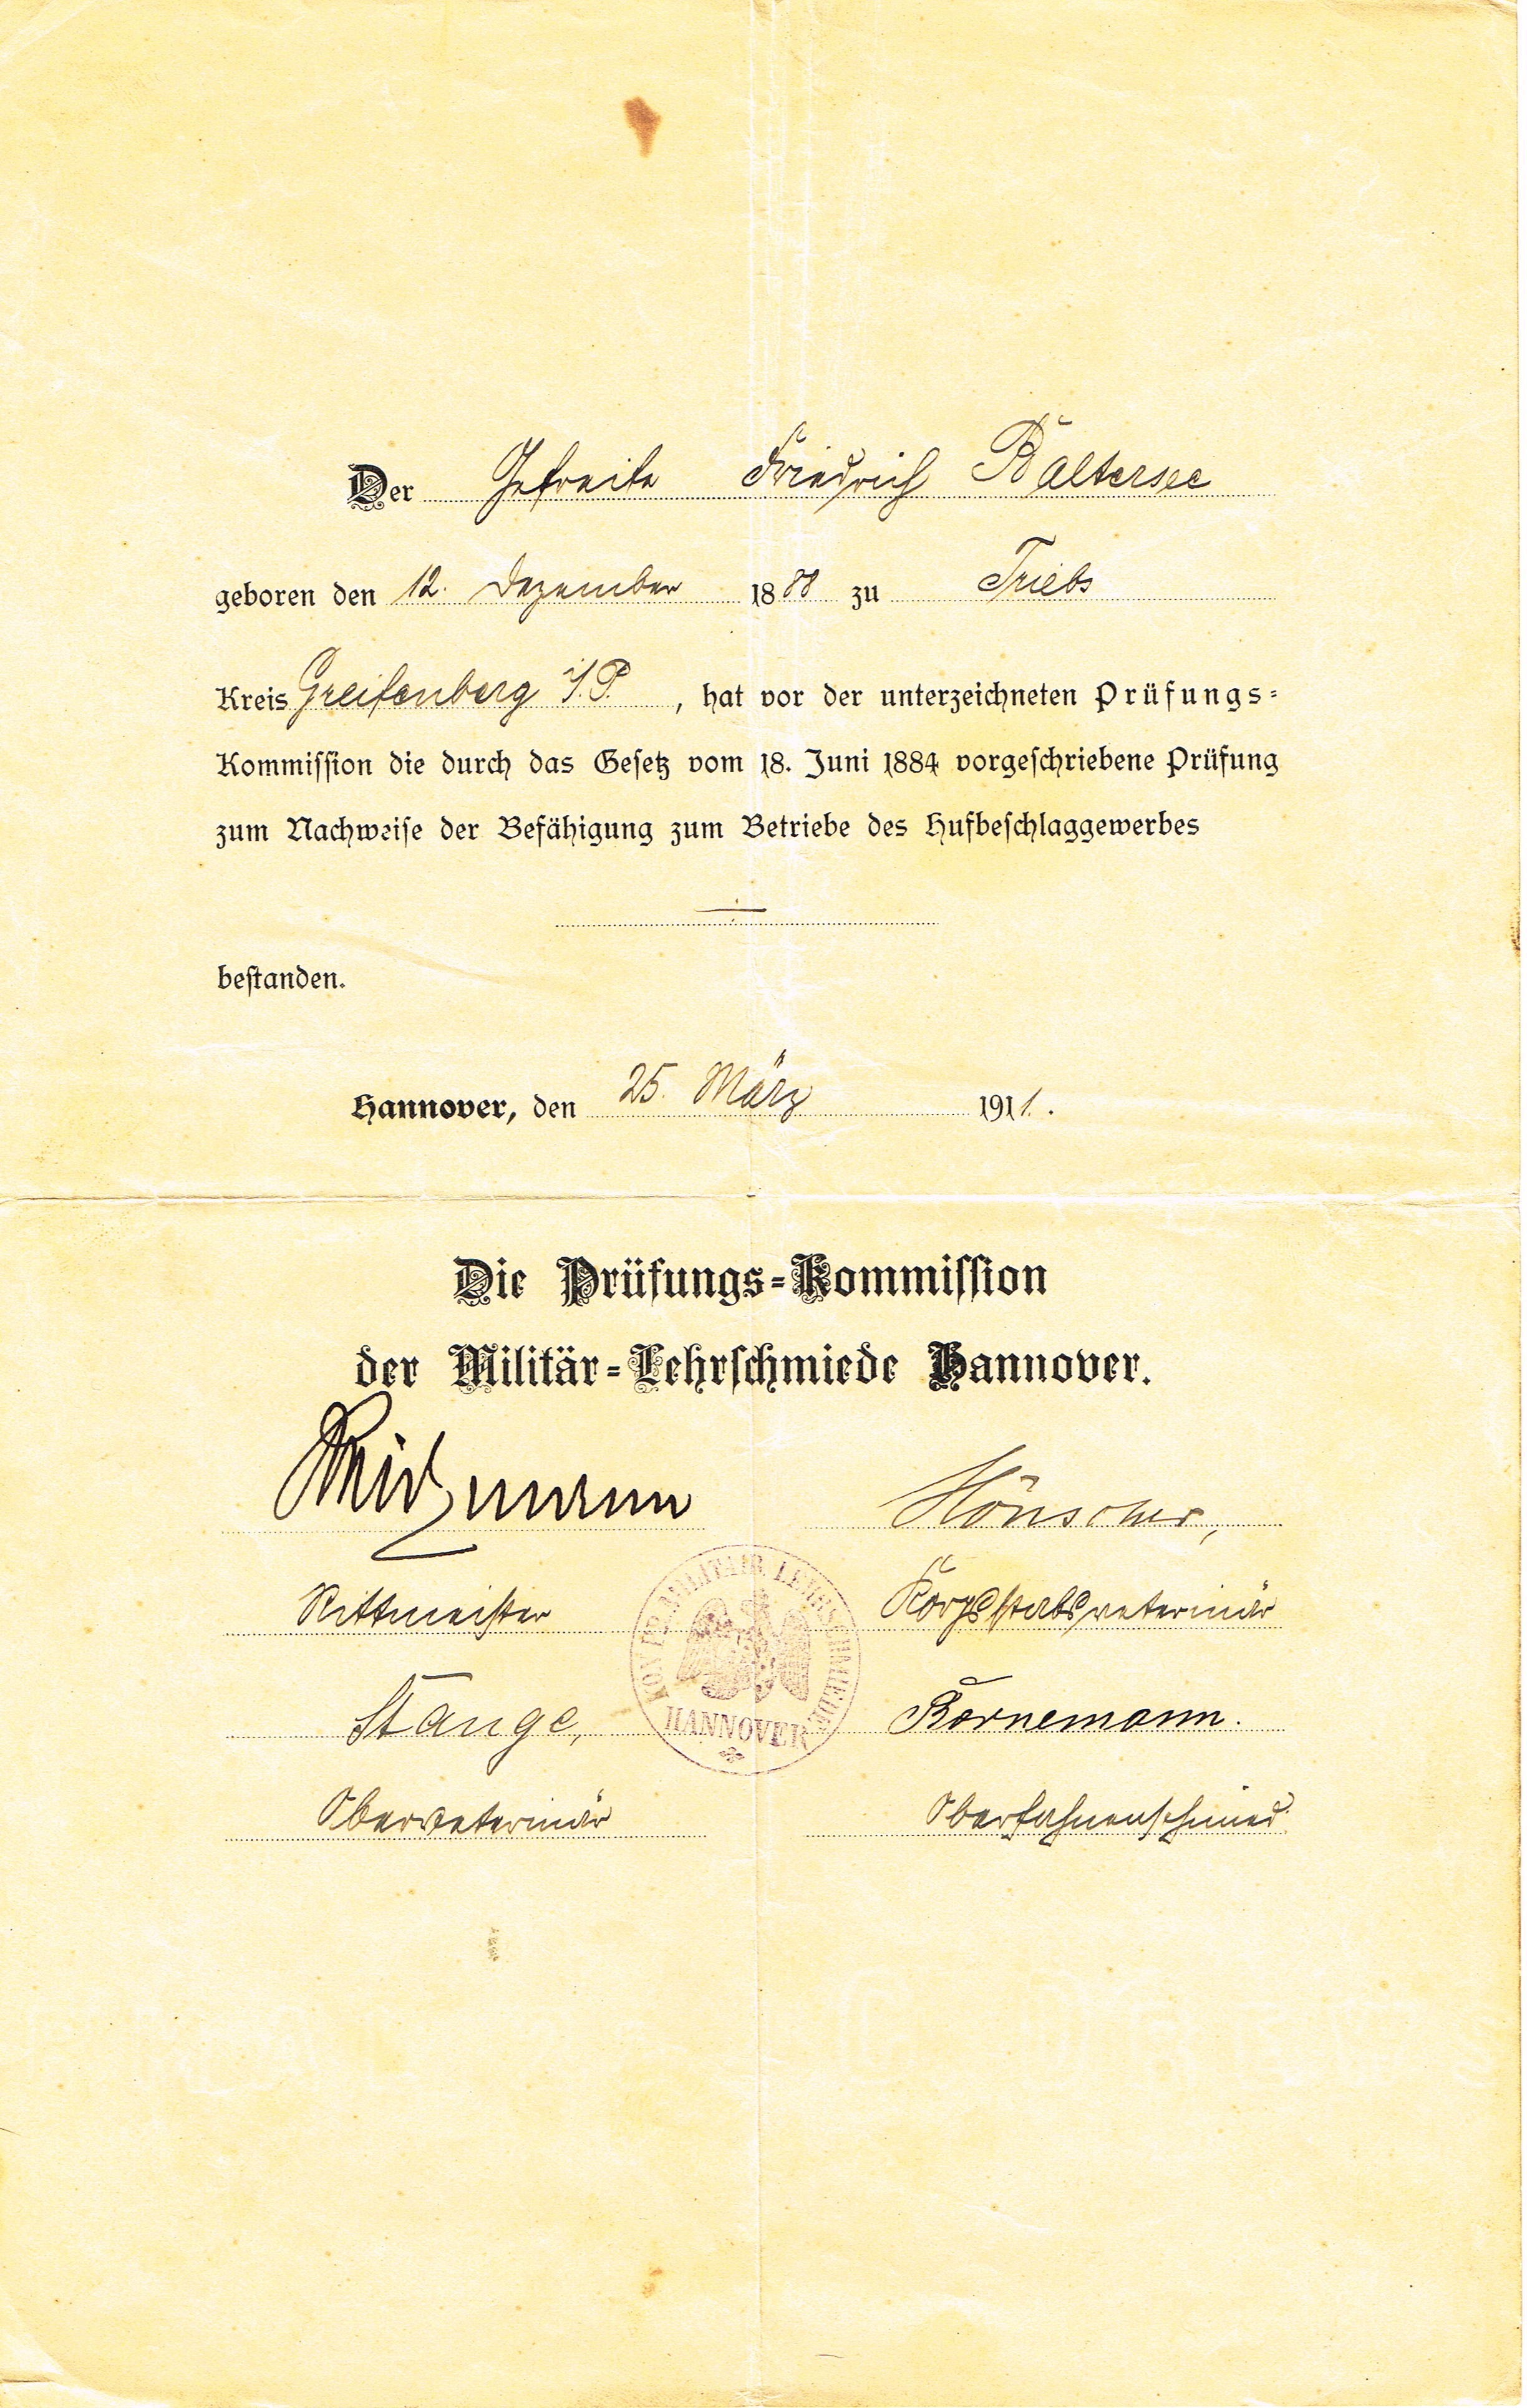 Der Gefreite Friedrich Baltersee
geboren den 12. Dezember 1888 zu Triebs
Kreis Greifenberg i/P. , hat vor der unterzeichneten Prüfungs-
Kommission die durch das Gesetz vom 18. Juni 1884 vorgeschriebene Prüfung
zum Nachweise der Befähigung zum Betriebe des Hufbeschlaggewerbes
bestanden.
Hannover, den 25. März 1911.
Die Prüfungs-Kommission
der Militär-Lehrschmiede Hannover.
Rittmeister Korpsstabsveterinär
MILITAIR LEHRSCHMIEDE
HANNOVER
Stange, Bornemann.
Oberveterinär Oberfahnenschmied